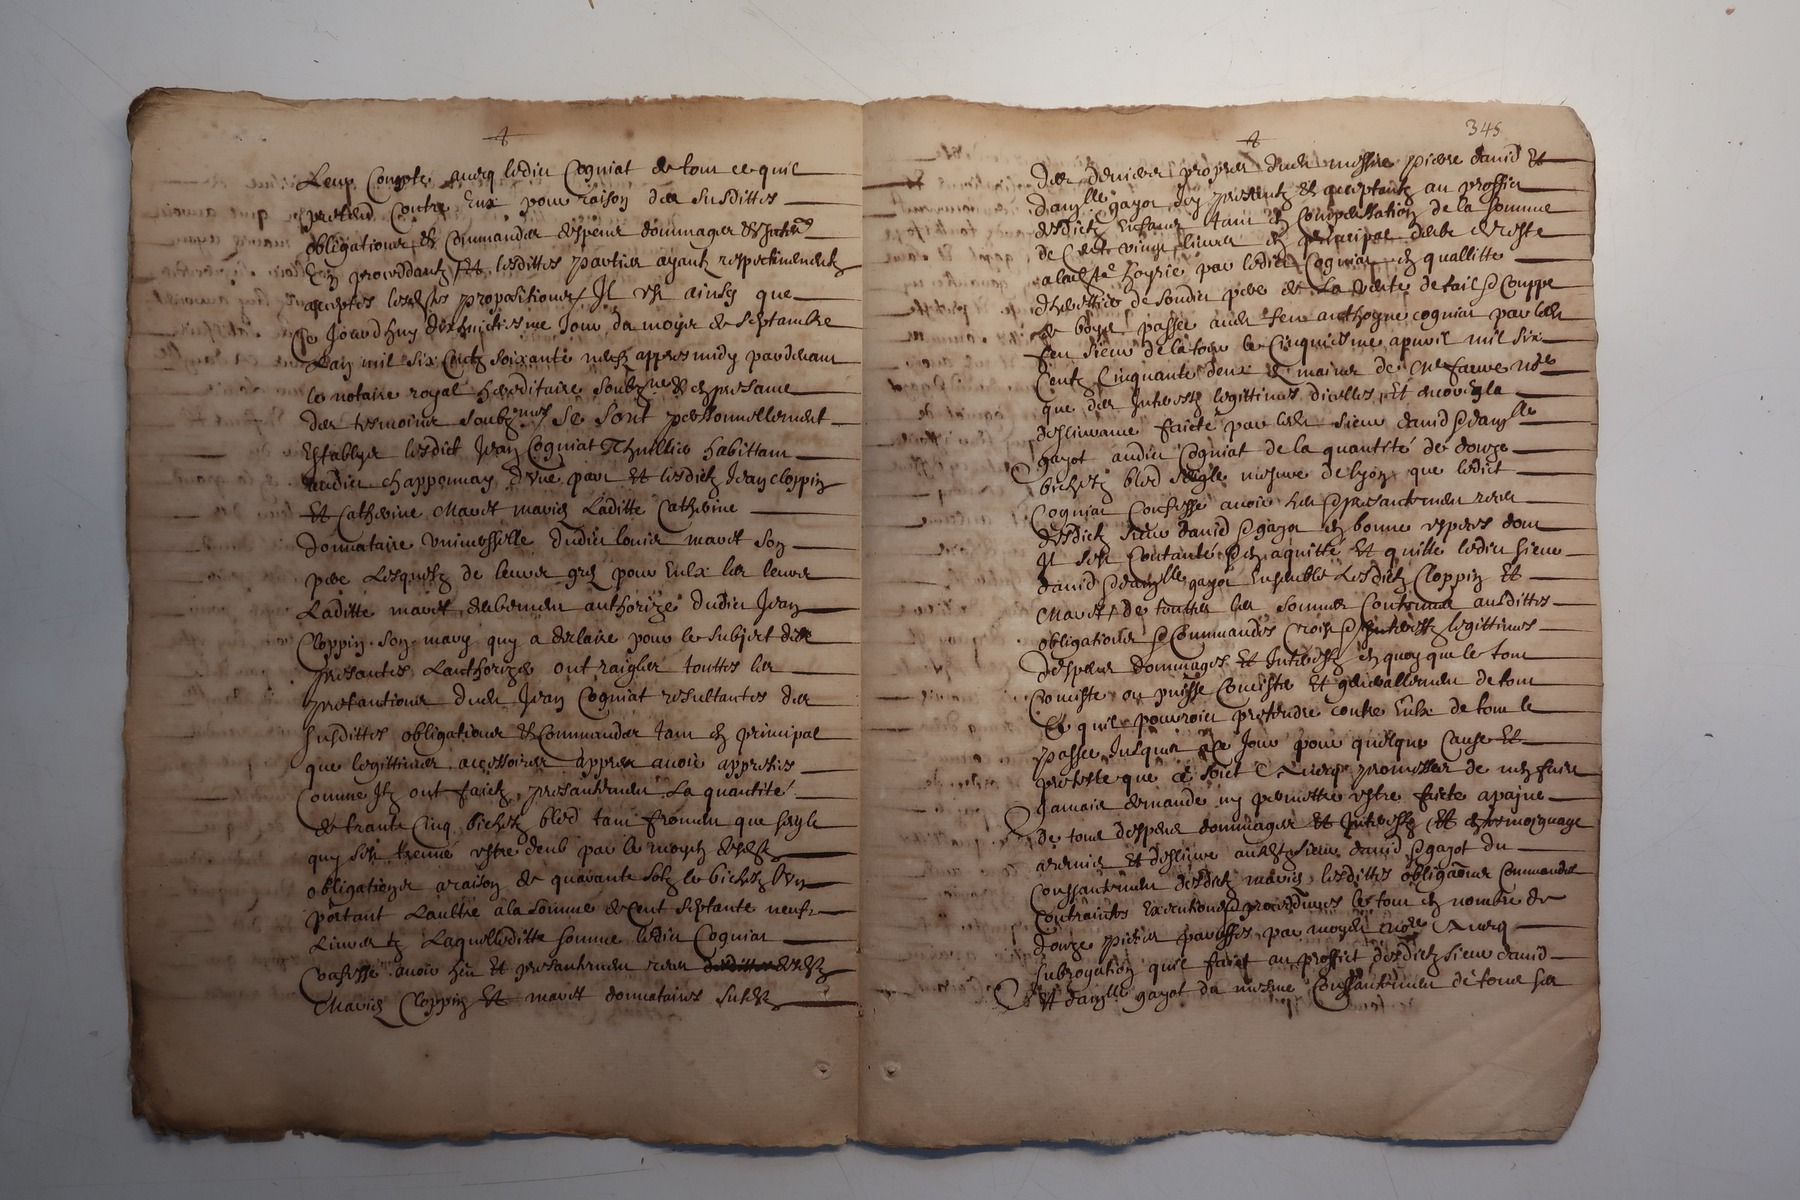 Leur Compte avecq ledict Cogniat de tout ce qu'il
pretend Contre Eux pour raison des susdittes
obligations et Commandes despens dommages et Interestz
En proceddantz Et lesdittes parties ayantz respectivementz
acceptés lesdictes propositions Il est ainsy que
Ce Jourd'huy dixhuictiesme Jour du moys de septambre
L'an mil six Centz soixante neufz appres midy pardevant
le notaire royal hereditaire soubzne et en presance
des tesmoins soubznes se sont personnellement
Establys lesdict Jean Cogniat Thuillier habittant
audict chapponnay d'une part Et lesdictz Jean cloppin
Et Catherine Mavet mariés Laditte Catherine
donnataire universelle dudict louis mavet son
pere Lesquelz de leurs grez pour Eulx les leurs
Laditte mavet deubement authorizée dudict Jean
Cloppin son mary quy a declaire pour le subject des
presantes L'authorizer ont raigler touttes les
pretantions dudict Jean Cogniat resultantes des
susdittes obligations et Commandes tant en principal
que legittimes accessoires appres avoir apprecies
Comme Ilz ont faictz presantement La quantité
de trante Cinq bichetz bled tant froment que seigle
quy s'est treuvé estre deub par le moyen desdictes
obligations a raison de quarante solz le bichetz l'un
portant L'aultre a la somme de Cent septante neufz
Livres tz Laquelleditte somme ledict Cogniat
Confesse avoir heu Et presantement receu desdictz
Mariés Cloppin Et mavet donnataires susdictz
345
Des deniers propres dudict messire pierre david Et
damylle gayot Icy presentz Et acceptantz au proffict
desdictz Enfans tant en Compensation de la somme
de Cent vingt livres en principal deube de reste
par ledict Cogniat en quallitte
d'heritier de sondict pere de La vente de taillie Couppe
de boys passee audict feu anthoyne cogniat par ledict
feu sieur de la tour le Cinquiesme apvril mil six
Centz Cinquante deux Es mains de Me faevre nore
que des Interestz legittimes d'icelles Et moyen la
deslivrance faicte par ledict sieur david & damylle
gayot audict Cogniat de la quantité de douze
bichetz bled seigle mesure de lyon que ledict
Cogniat Confesse avoir heu & presantement receu
desdictz sieur david & gayot en bonne especes dont
Il s'est Contanté & en aquitté Et quitte ledict sieur
david & damylle gayot Ensemble Lesdictz Cloppin Et
Mavet de touttes les sommes Contenues ausdittes
obligations & Commandes & Interestz legittimes
despens dommages Et Interestz en quoy que le tout
Conciste ou puisse Conciste Et generallement de tout
Ce quil pourroict pretendre contre Eulx de tout le
passee Jusques a Ce Jour pour quelque Cause Et
pretexte que ce soict Avecq promesses de n'en faire
Jamais demande ny permettre estre faicte a payne
De tous despens dommages Et Interestz Et en tesmoignage
a remis Et deslivre ausdictz sieur david & gayot du
Consantement desdictz mariés lesdittes obligaons commandes
Contraictes Executions & procedures le tout en nombre de
douze pieces par moyen Avecq
subrogation qu'il faict au proffict desdictz sieur david
Et damylle gayot du mesme Consantement de tous ses